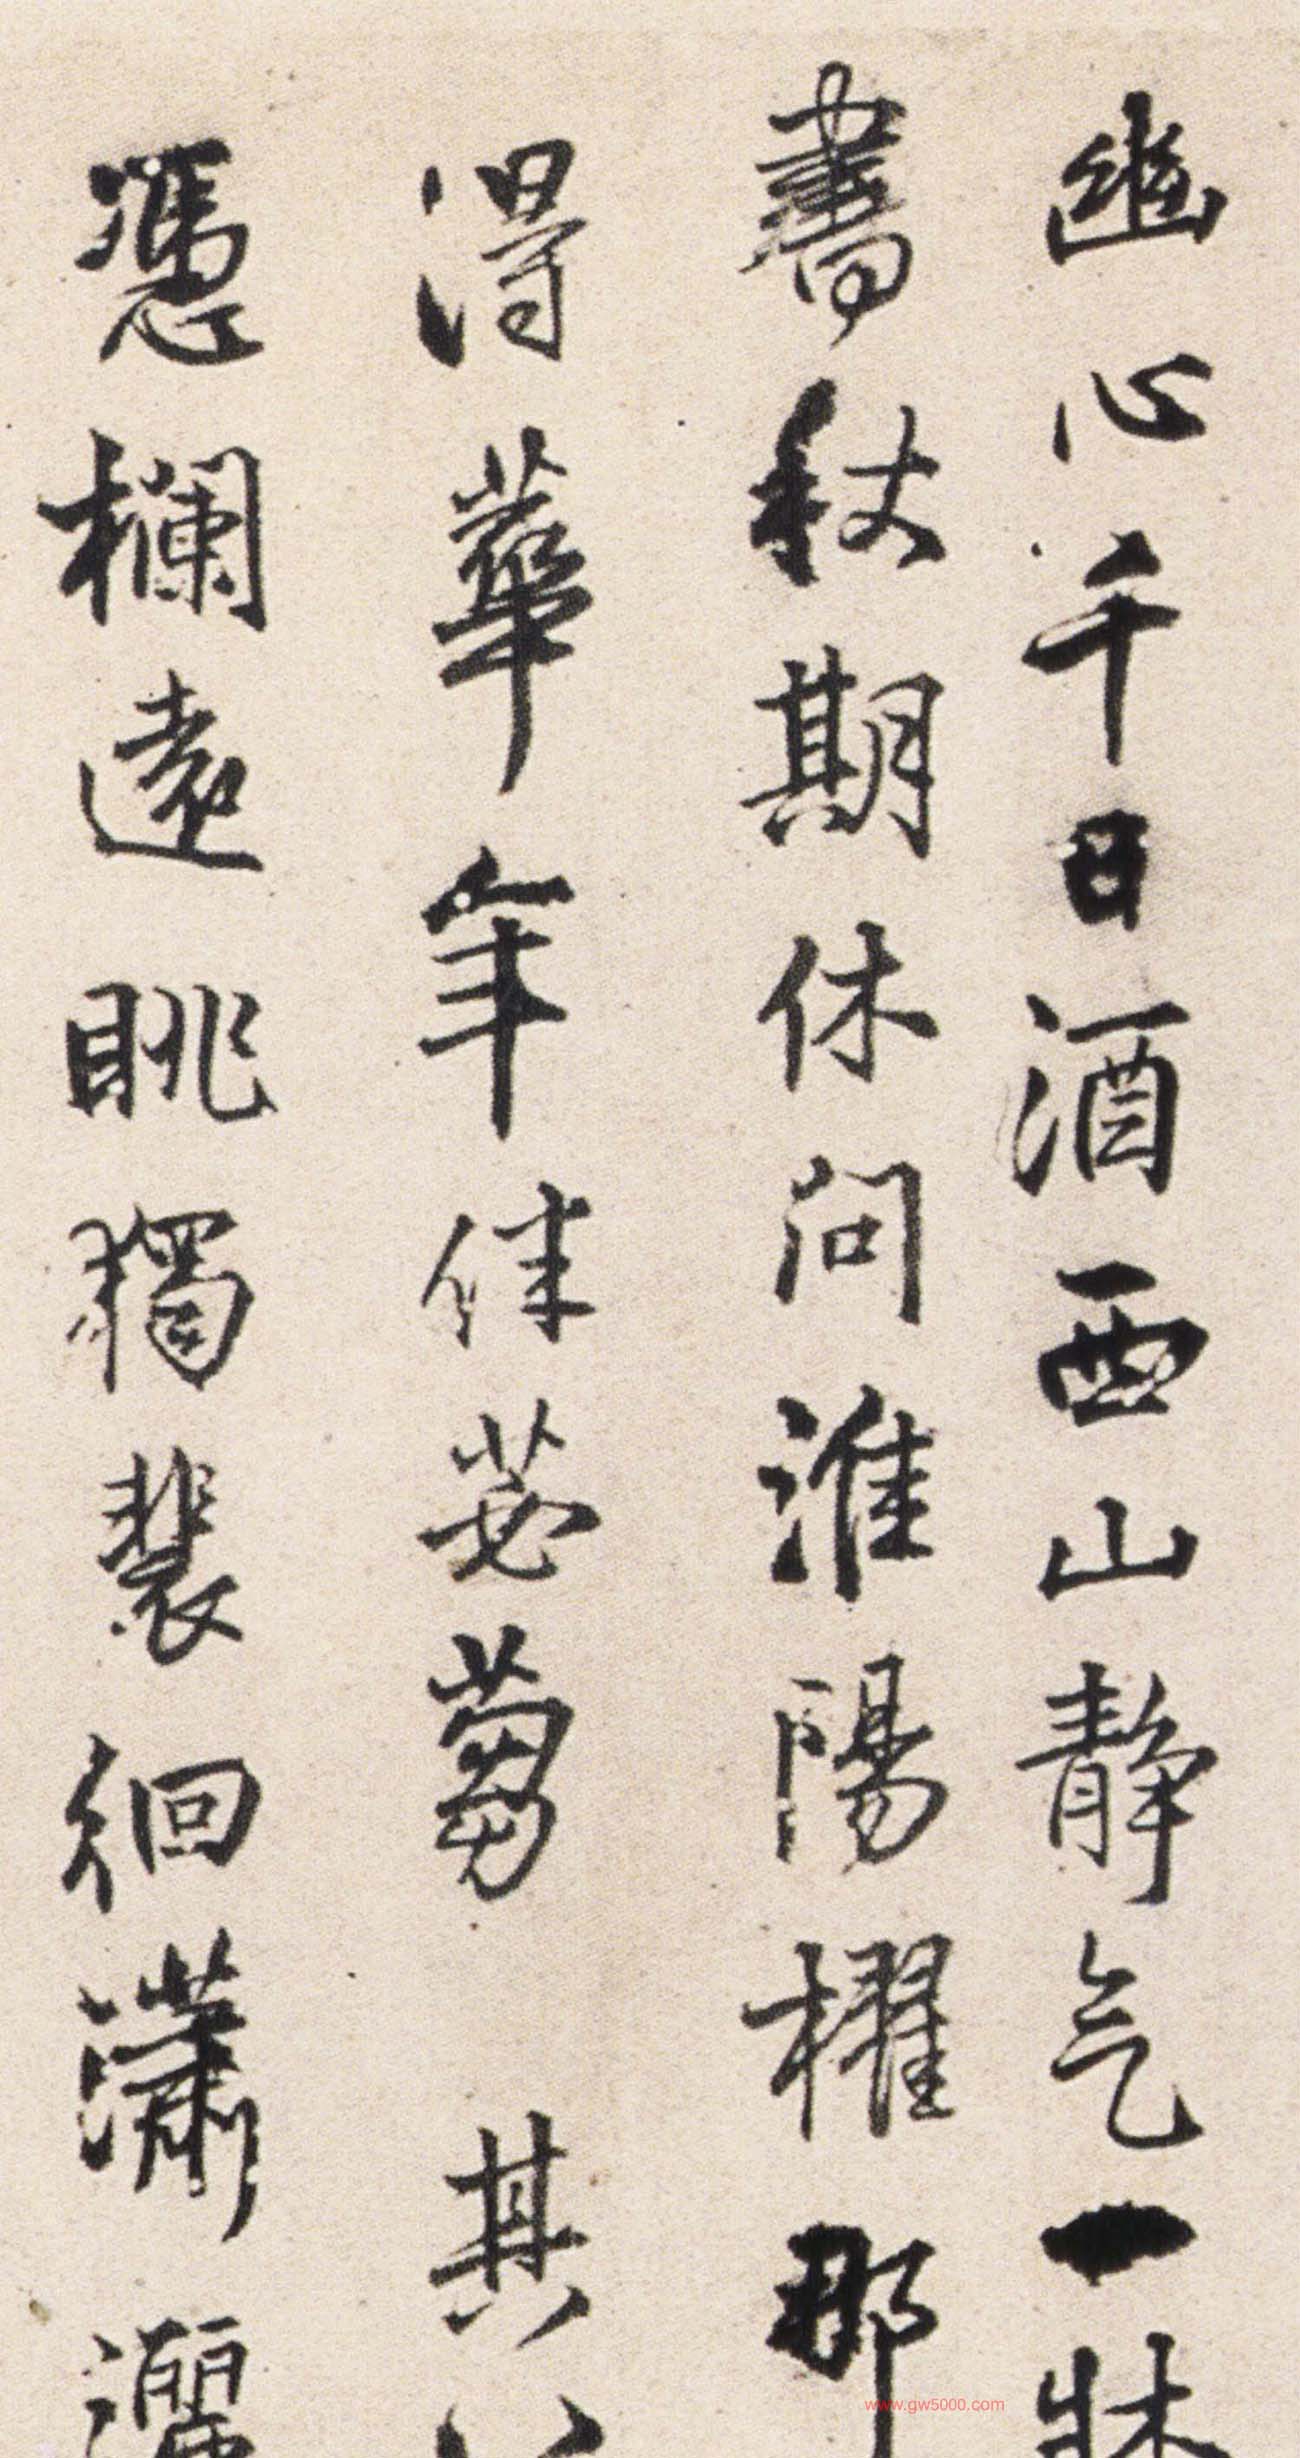 幽心千日酒西山静气一牀
書秋期休问淮陽櫂那
得華年伴苾蒭 其八
憑欄遠眺獨裴徊瀟灑
www.gw5000.com